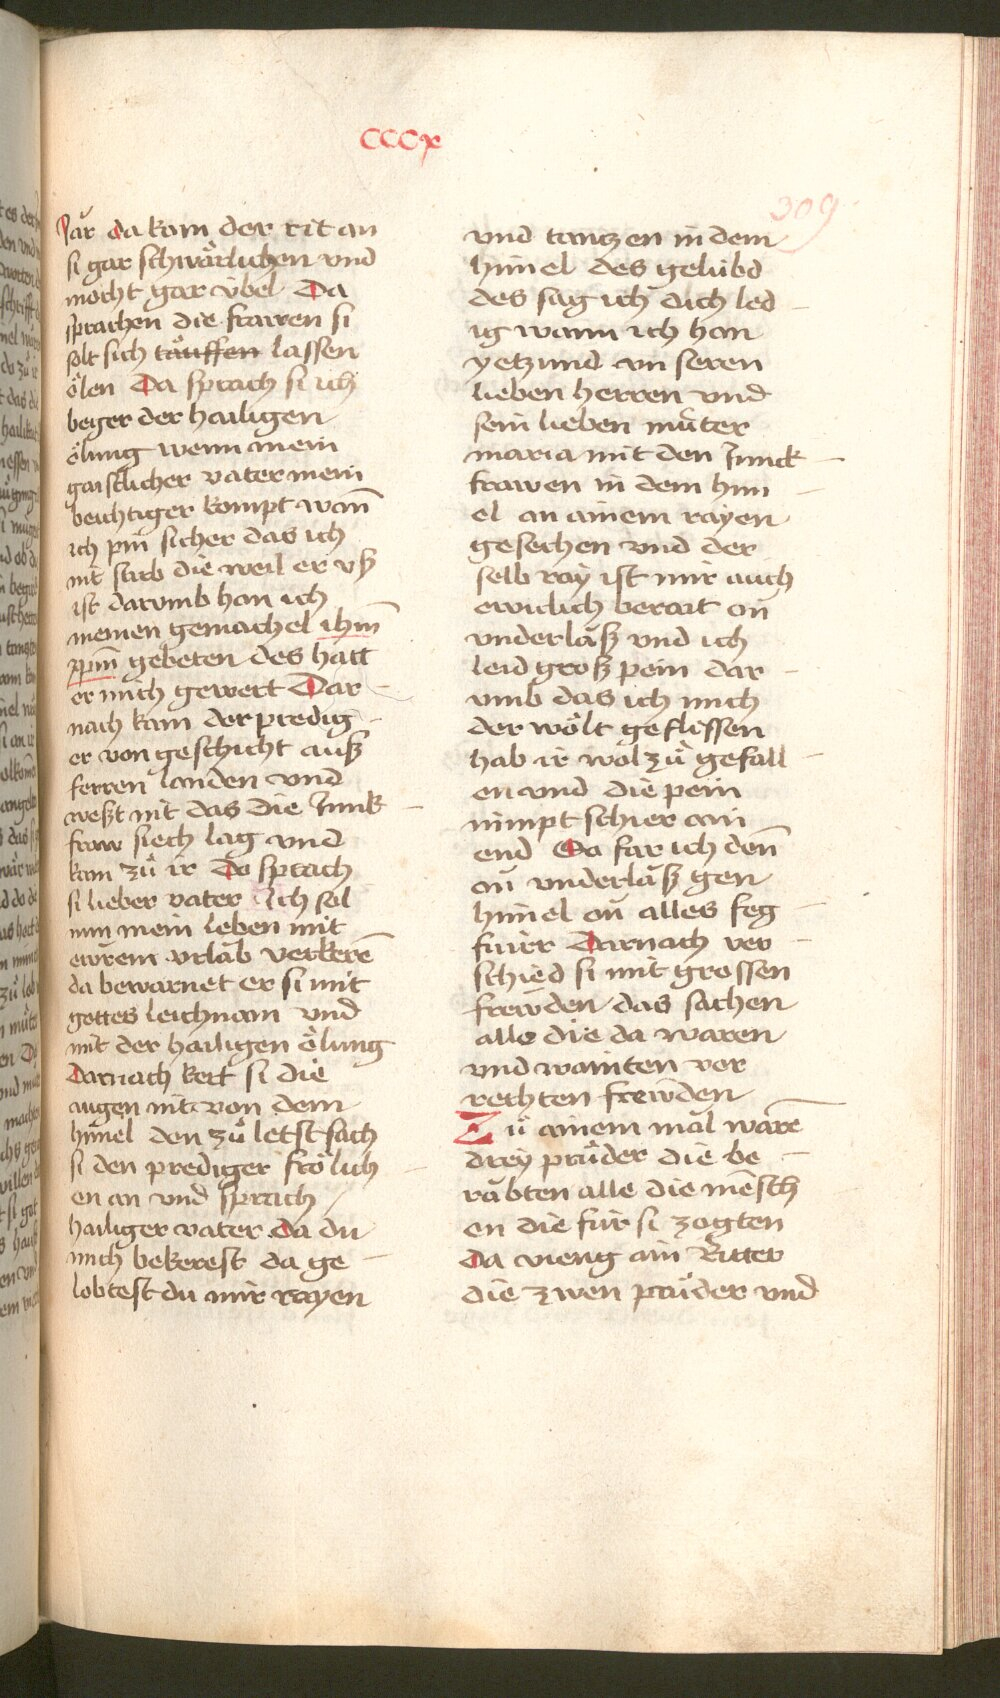 CCCx
309
Jar da kam der rit an
si gar schwärlichen vnd
mocht gar vbel Da
sprachen die frawen si
solt sich täuffen lassen
ölen Da sprach si ich
beger der hailigen
ölung wenn mein
gaistlicher vater mein
beichtiger kompt wañ
ich pin sicher das ich
nit stirb die weil er vß
ist darvmb han ich
meinen gemachel ihm̄
xp̄m gebeten des hatt
er mich gewert Dar
nach kam der predig
er von geschicht auß
ferren landen vnd
weßt nit das die Junk
fraw siech lag vnd
kam zů ir Do sprach
si lieber vater Ich sol
nun mein leben mit
ewrem vrlab verkerē
da bewarnet er si mit
gottes leichnam vnd
mit der hailigen ölung
Darnach kert si die
augen nit von dem
himel den zů letst sach
si den prediger frölich
en an vnd sprach
hailiger vater da du
mich bekerest da ge
lobtest du mir rayen
vnd tantzen in dem
himel des gelübd
des sag ich dich led
ig wann ich han
yetzund vn seren
lieben herren vnd
sein lieben müter
maria mit den Junck
frawen in dem him
el an ainem rayen
gesechen vnd der
selb ray ist mir auch
ewiclich berait on
vnderläß vnd ich
leid groß pein dar
vmb das ich mich
der wölt geflissen
hab ir wol zů gefall
en vnd die pein
nimpt schier ain
end Da far ich deñ
on vnderläß gen
himel on alles feg
fuirr Darnach ver
schied si mit grossen
frewden das sachen
alle die da waren
vnd wainten vor
rechten frewden
Zů ainem mal warē
drey prüder die be
räbten alle die mensch
en die für si zogten
Da vieng ain Ritter
die zwen prüder vnd